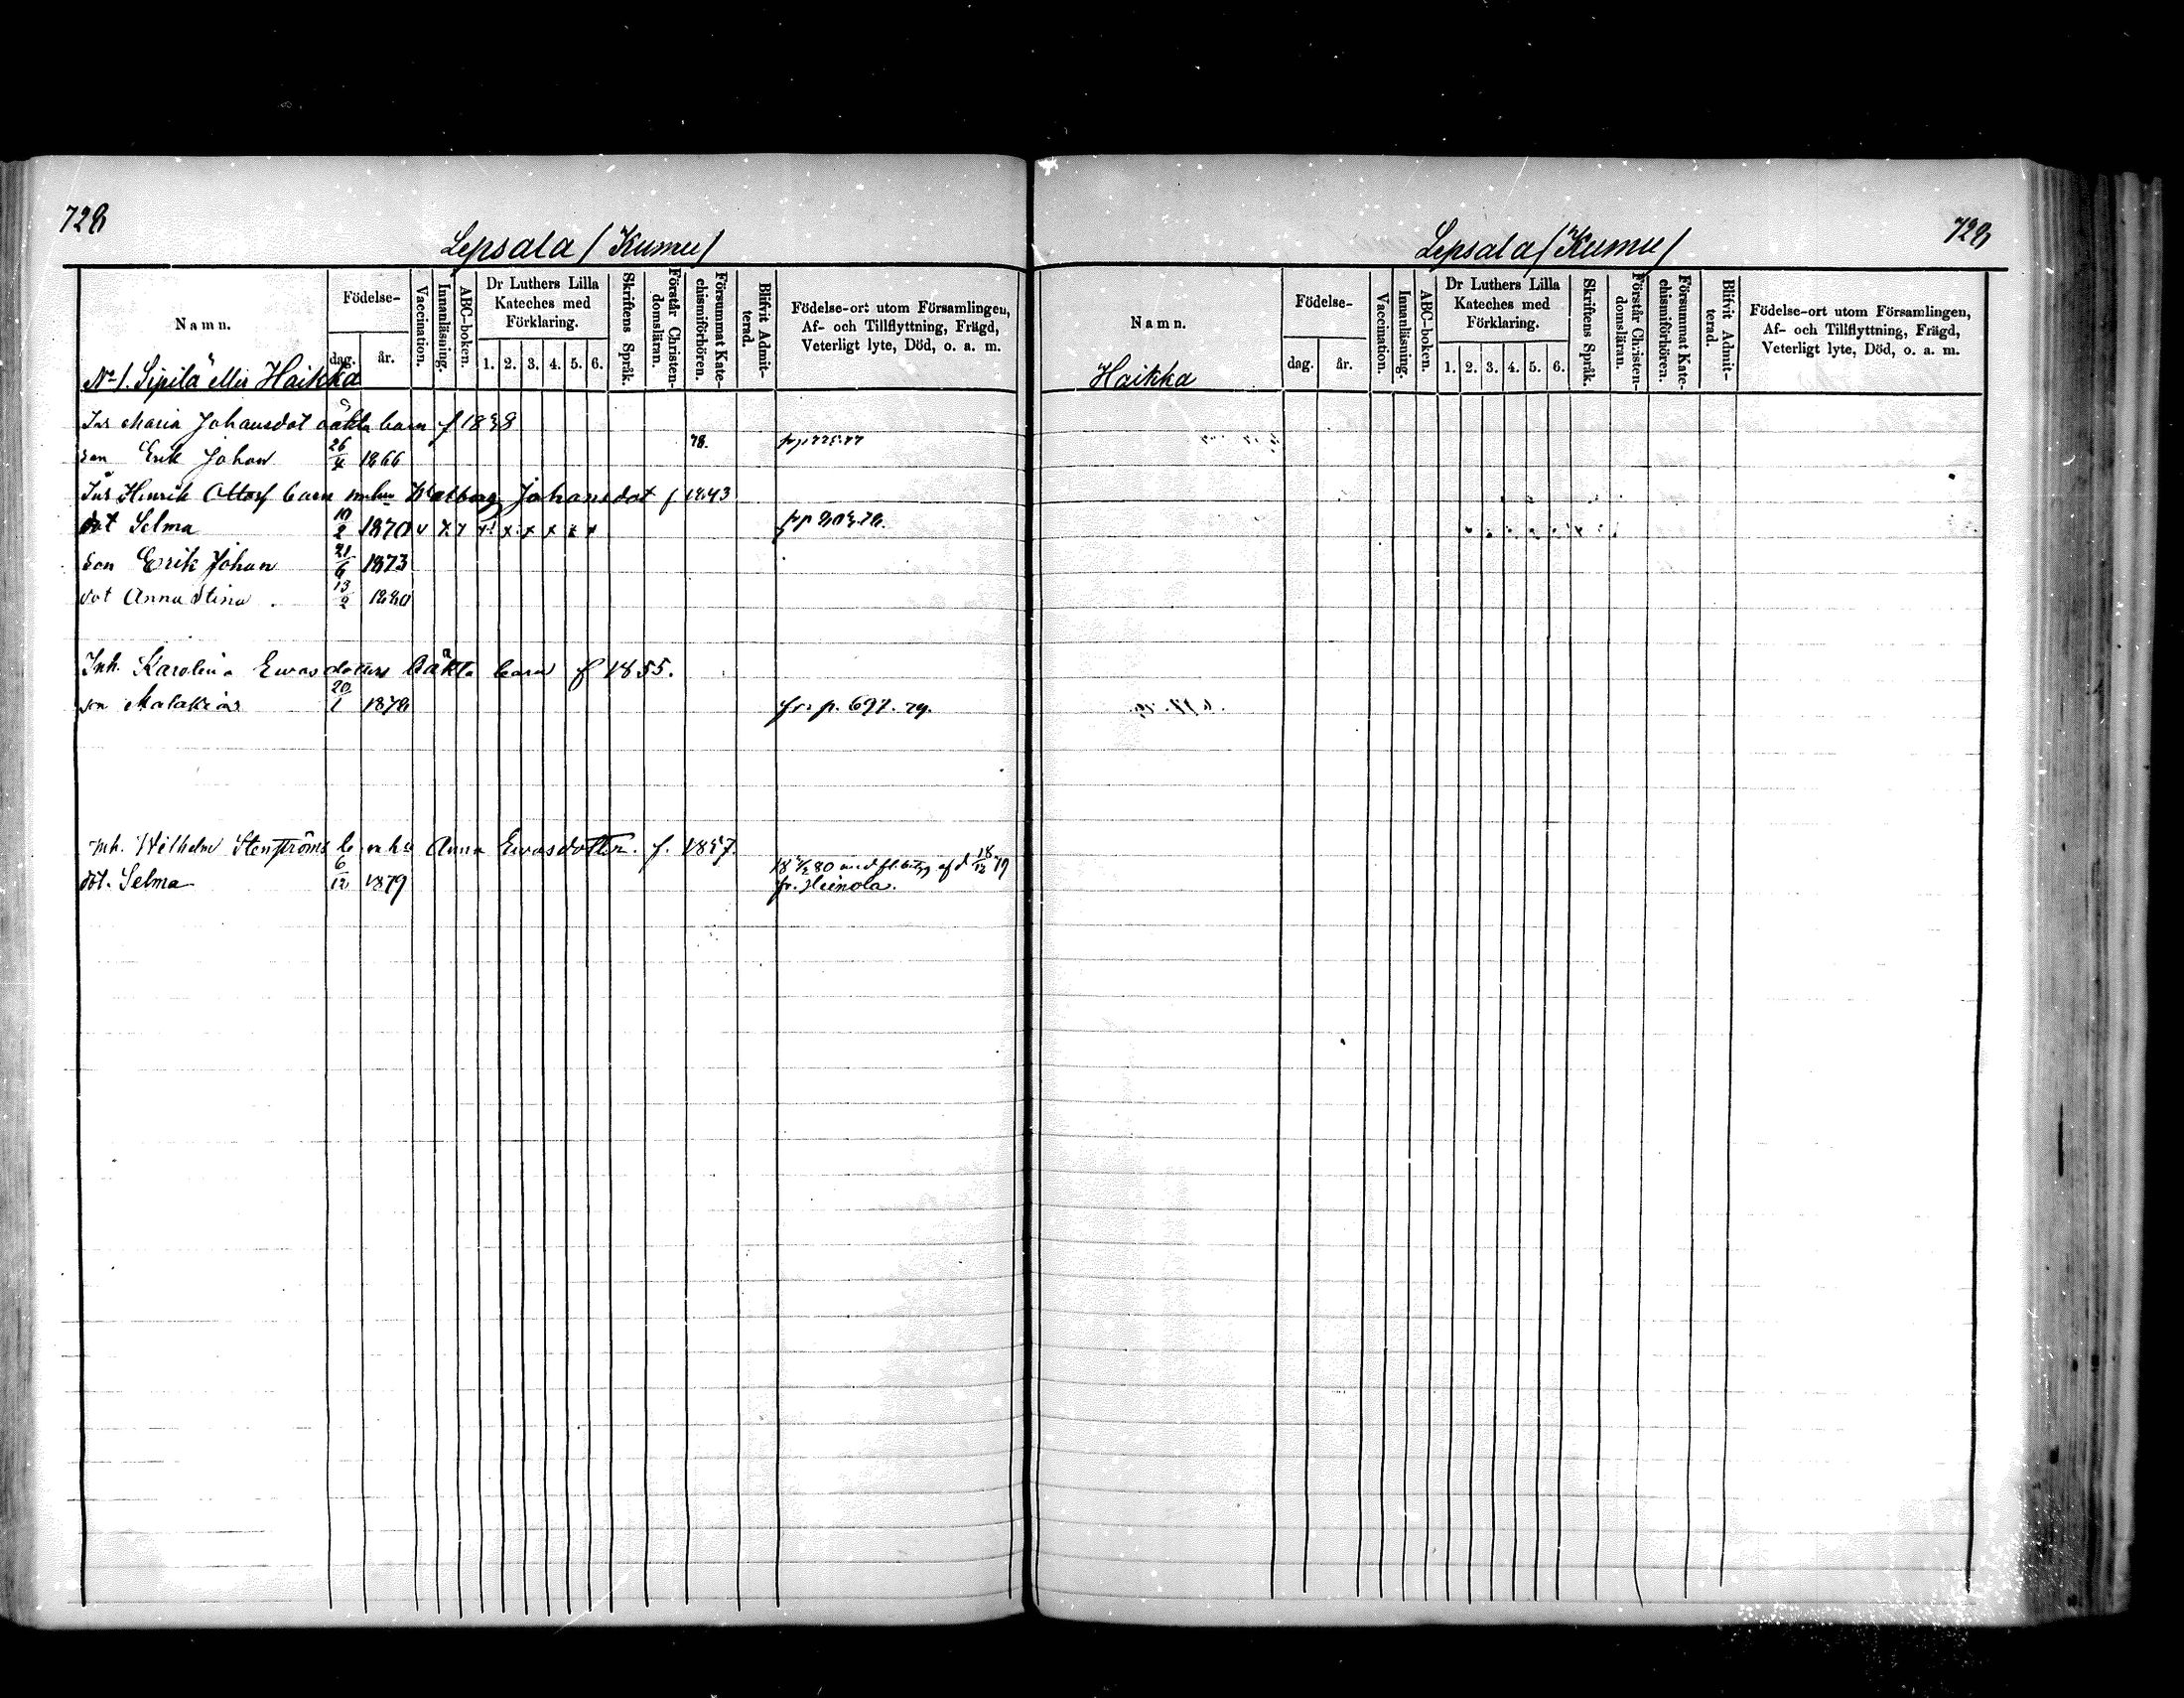 728
Lepsala / Kumu /
Namn.
Födelse-
dag.
år.
Vaccination.
Innanläsning.
ABC-boken.
Dr Luthers Lilla
Kateches med
Förklaring.
1. 2. 3. 4. 5. 6.
Skriftens Språk.
Förstår Christen-
domsläran.
Försummat Kate-
chismiförhören.
Blifvit Admit-
terad.
Födelse-ort utom Församlingen,
Af- och Tillflyttning, Frägd,
Veterligt lyte, Död, o. a. m.
No 1. Sipilä eller Haikka
Maria Johansdot oäkta barn f
78.
son Erik Johan 26/4 1866
Henrik barn m hu Johansdot f 1843
dot Selma 10/2 1870 v x x x x x x x x
son Erik Johan 21/6 1873
dot Anna Stina 13/2 1880
Inh. Karolina Ewasdotters oäkta barn f 1855.
son Malakias 20/1 1878 fr. p. 697. 79.
inh. Wilhelm Stenströms b m hu Anna Ewasdotter. f. 1857.
80 med af d 18/12 79
dot. Selma 6/12 1879 fr. Heinola.
728
Lepsala / Kumu /
Namn.
Födelse-
dag.
år.
Vaccination.
Innanläsning.
ABC-boken.
Dr Luthers Lilla
Kateches med
Förklaring.
1. 2. 3. 4. 5. 6.
Skriftens Språk.
Förstår Christen-
domsläran.
Försummat Kate-
chismiförhören.
Blifvit Admit-
terad.
Födelse-ort utom Församlingen,
Af- och Tillflyttning, Frägd,
Veterligt lyte, Död, o. a. m.
Haikka